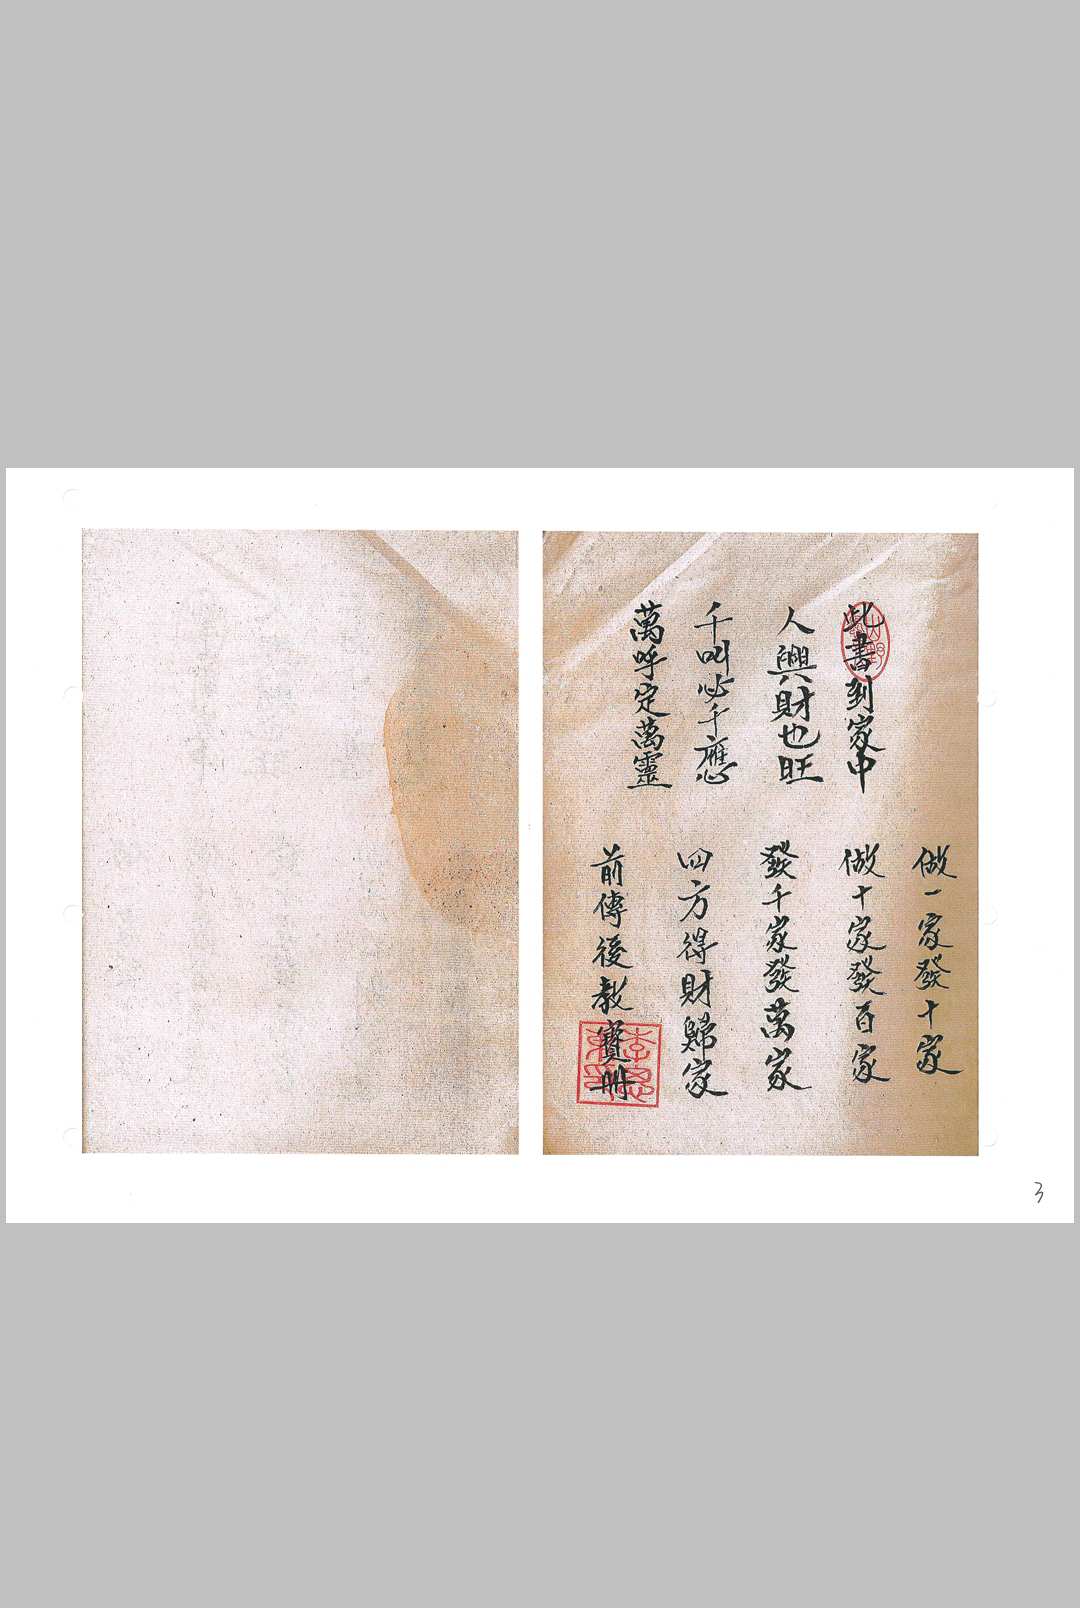 此書到家中
人興財也旺
千叫必千應
萬呼定萬靈
做一家發十家
做十家發百家
發千家發萬家
四方得財歸家
前傳後教寶册
3